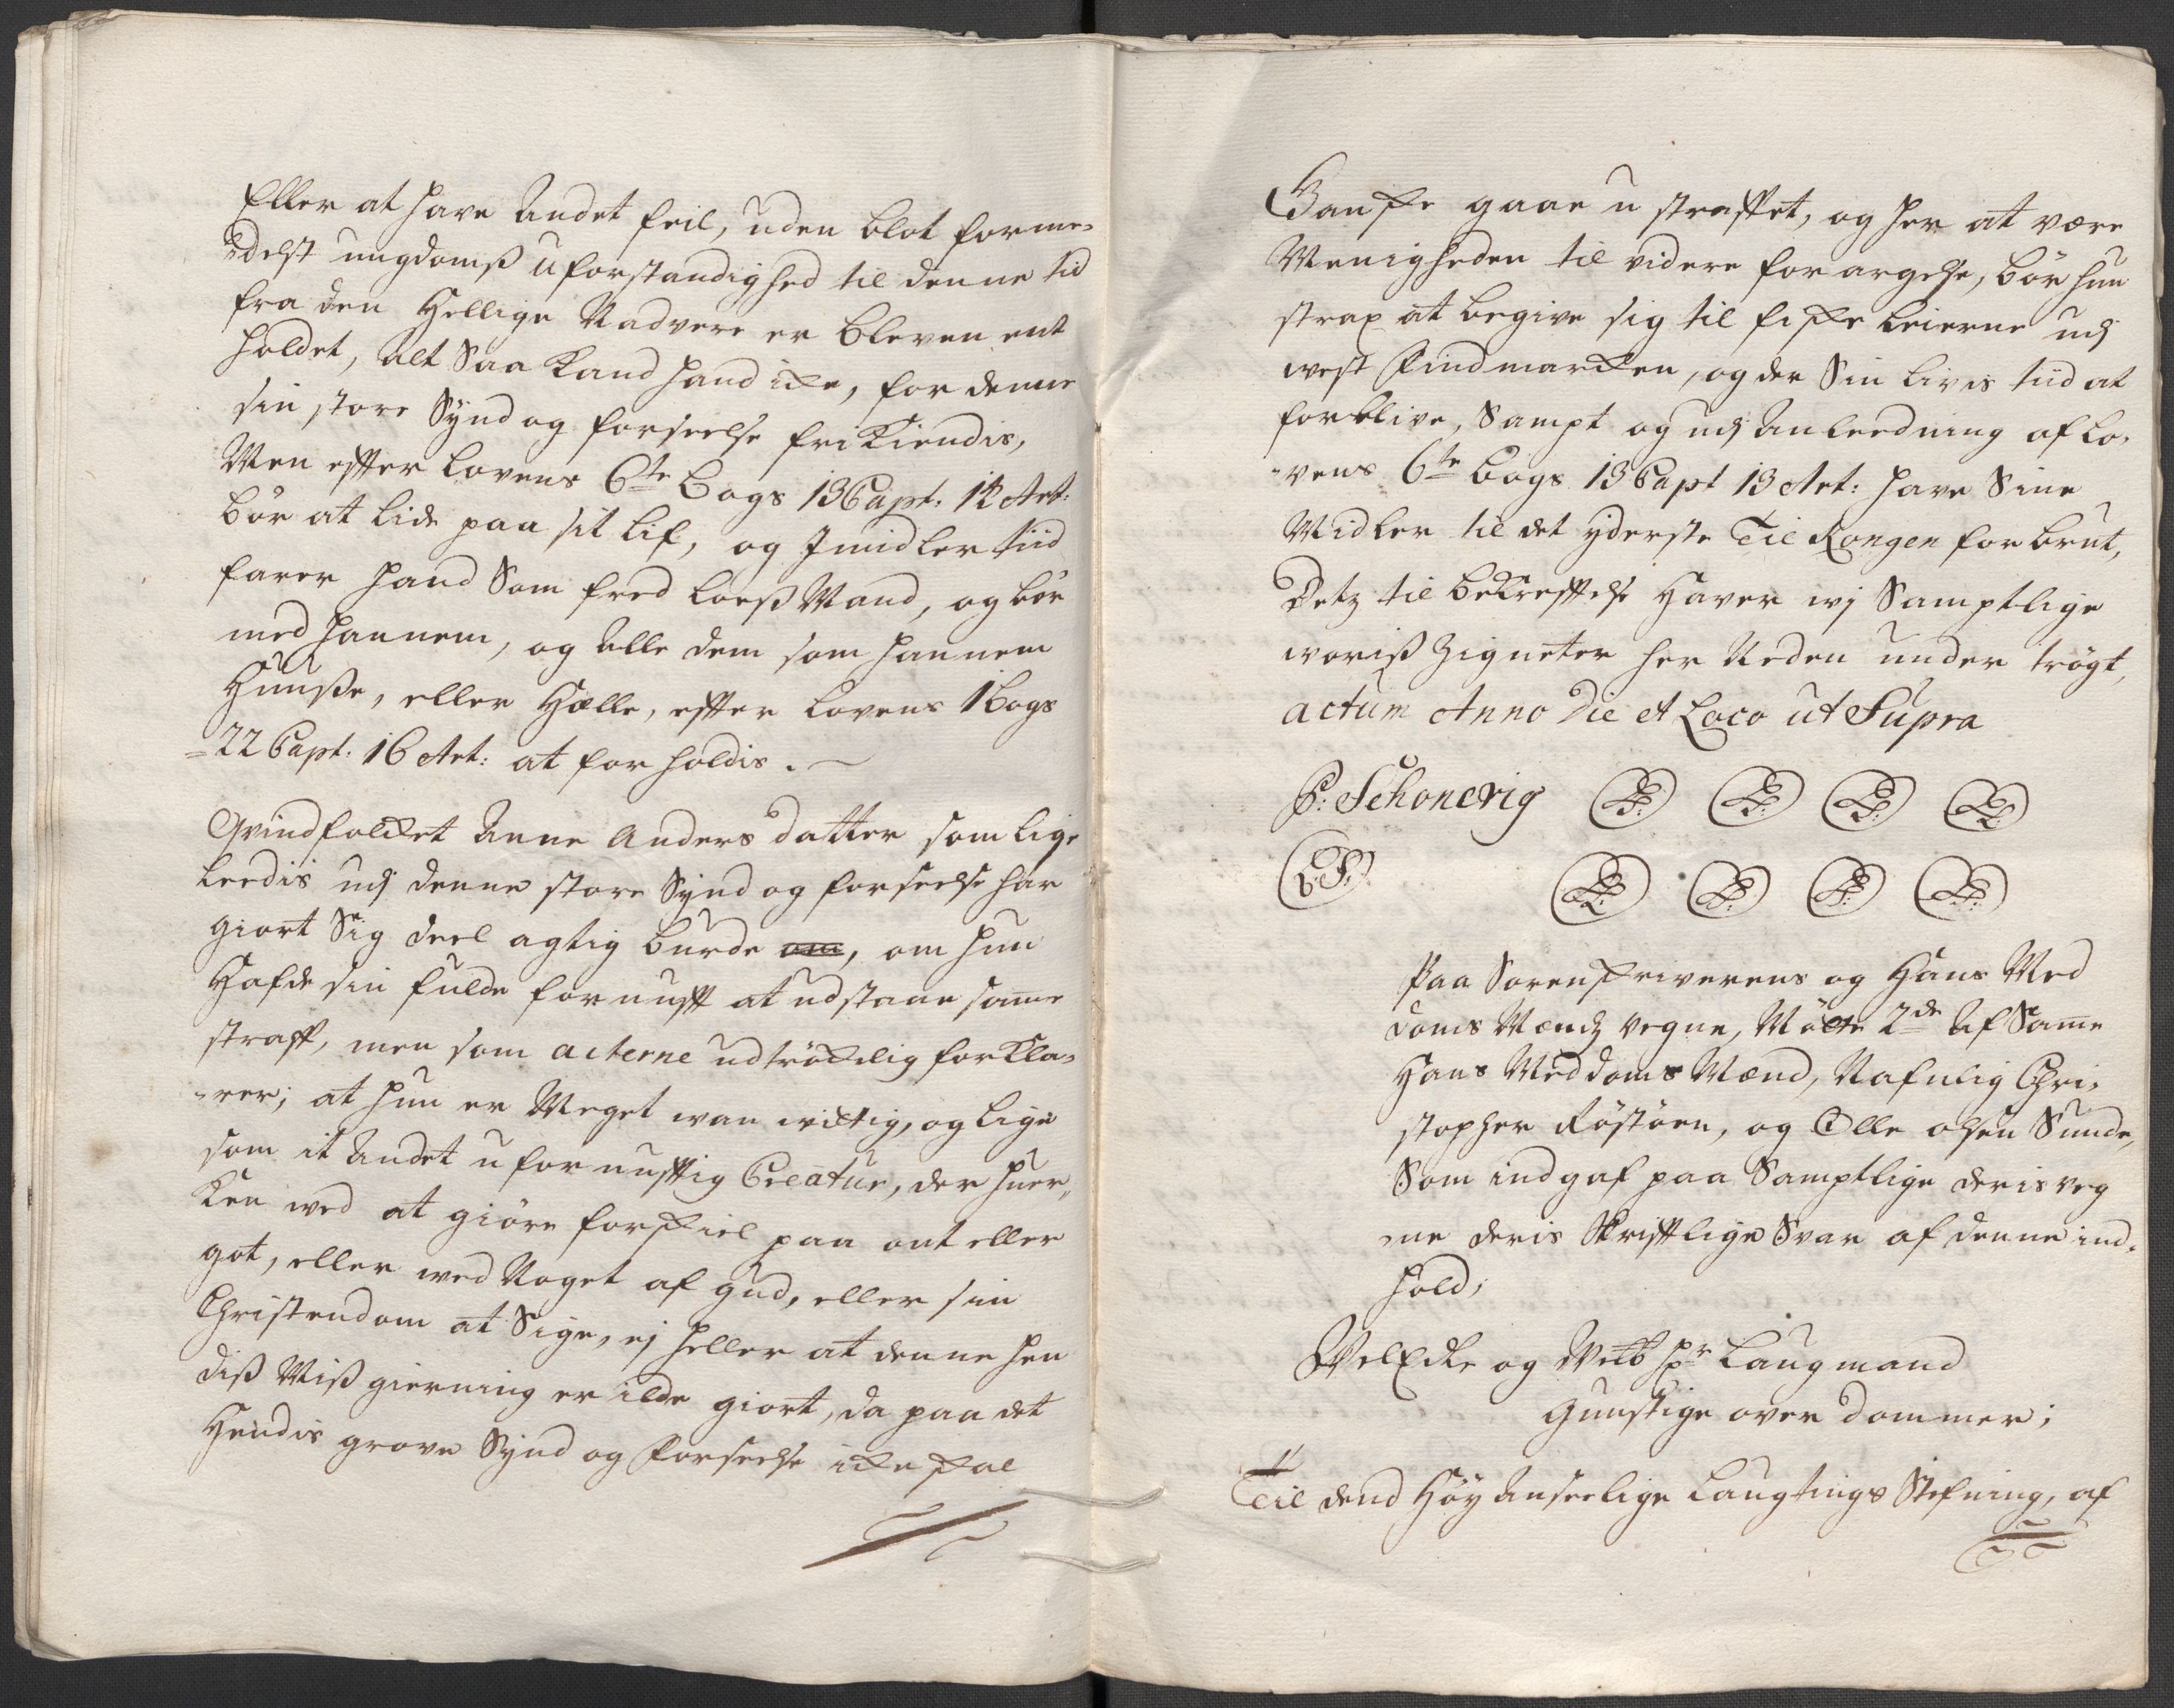 Eller at have andet feil, uden blot forme¬
¬delst ungdomß uforstandighed til denne tid
fra den Hellige Nadvere er bleven ent
holdet, alt Saa kand hand icke, for denne
sin store Synd og forseelse frikiendis,
Men effter Lovens 6te Bogs 13 Capt: 14 Art:
bør at lide paa sit lif, og Imidlertiid
farer hand Som fred loeß Mand, og bør
med hannem, og alle dem som hannem
Huuße, eller Hælle, effter Lovens 1 Bogs
22 Capt: 16 Art: at forholdis.
Qvindfolcket Anne Andersdatter som lige
leedis udj denne store Synd og forseelse har
giort Sig deel agtig burde om, om hun
Hafde sin fulde fornufft at udstaae same
straff, men som acterne udtröckelig forkla¬
¬rer; at hun er Meget wanwittig, og lige
som it andet ufornufftig Creatur, der huer¬
ken wed at giøre forskiel paa ont eller
got, eller wed Noget af gud, eller sin
Christendom at Sige, ej heller at denne hen
diß Mißgierning er ilde giort, da paa det
Hendis grove Synd og Forseelse icke skal
Ganske gaae u straffet, og her at være
Menigheden til videre forargelse, bør hun
strax at begive sig til fiske leierne udj
west Findmarcken, og der Sin livis tiid at
forblive, Sampt og udj Anleedning af Lo¬
¬vens 6te Bogs 13 Capt 13 Art: have Sine
Midler til det yderste Til Kongen forbrut,
Detz til bekreffttelse Haver wj Samptlige
woriß Zigneter her Neden under trögt,
actum Anno Die et Loco ut Supra
P: Schonevig
L.S.
Paa Sorenskriverens og Hans Med
doms Mændz vegne, Møtte 2de af Same
Hans Meddoms Mænd, Nafnlig Chri¬
stopher Röstöen, og Olle olsen Sunde,
Som indgaf paa Samptlige deris veg
¬ne deris Skrifftlige Svar af denne ind¬
hold;
WelEdle og Welb Hr Laugmand
gunstige over dommer;
Til dend Höy Anseelige Laugtings Stefning, af